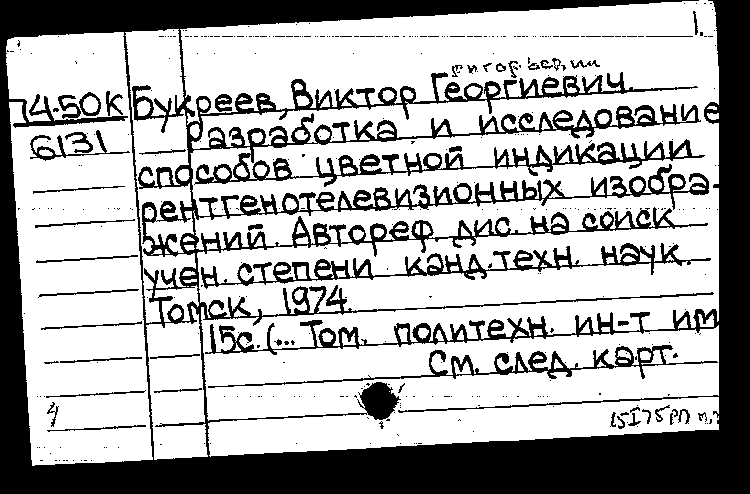 1.
григорьевич
74-50К Букреев, Виктор Георгиевич.
6131 Разработка и исследование
способов цветной индикации
рентгенотелевизионных изобра-
жений. Автореф. дис. на соиск
учен. степени канд. техн. наук.
Томск, 1974.
15с. (... Том. политехн. ин-т им
См. след. карт.
4